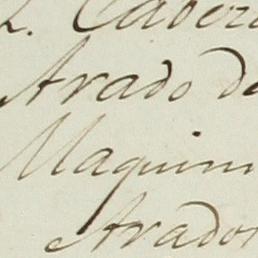 L. Cabeza
Arado de
Maquin
Arador